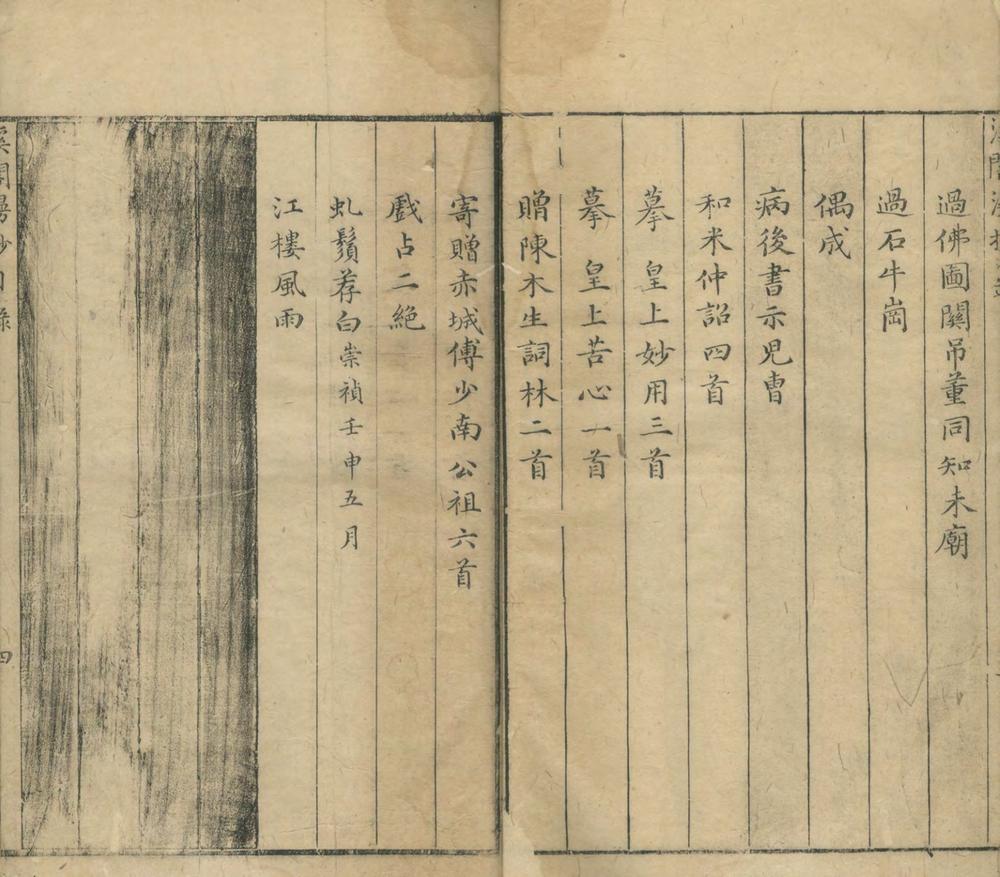 過佛圖關吊董同知未廟
過石牛崗
偶成
病後書示児曺
和米仲詔四首
摹 皇上妙用三首
摹 皇上苦心一首
贈陳木生詞林二首
寄贈赤城傅少南公祖六首
戲占二絕
虬鬚荐白崇禎壬申五月
江樓風雨
四